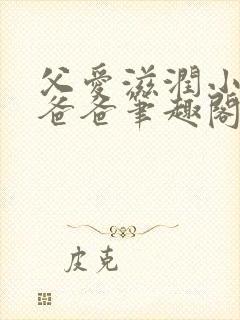 父爱滋润小
爸爸笔趣阁
皮克